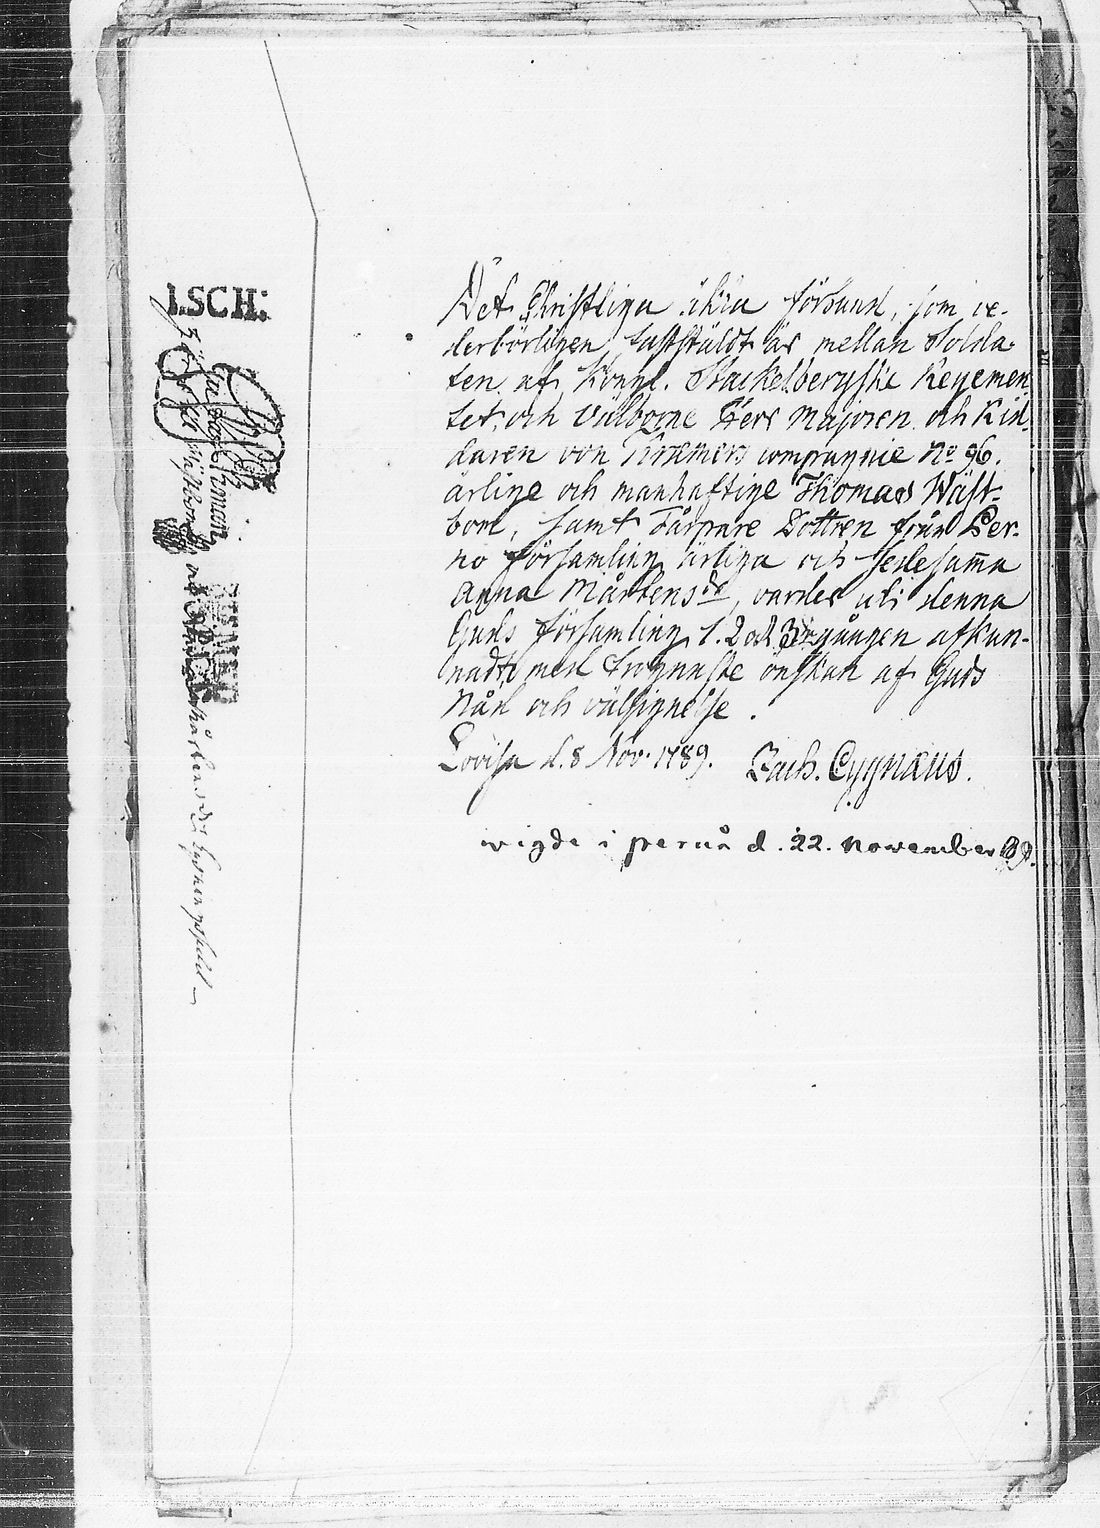 Det Christliga äkta förbund, som ve-
derbörligen fastställdt är mellan Solda-
ten af Kongl. Stackelbergske Regemen
tet, och Välborne Herr Majoren och Rid-
daren von compagnie No 96.
ärlige och manhaftige Thomas Wäst-
bom, samt Dottren från Per-
no församling ärliga och sedesam̃a
Anna Mårtensdr, vardes uti denna
Guds församling 1. 2 och 3 gången afkun-
nadt med trognaste önskan af Guds
Nåd och välsignelse.
Lovisa d. 8 Nov. 1789. Zach. Cygnæus.
wigde i perna d. 22. november 89.
I.SCH: